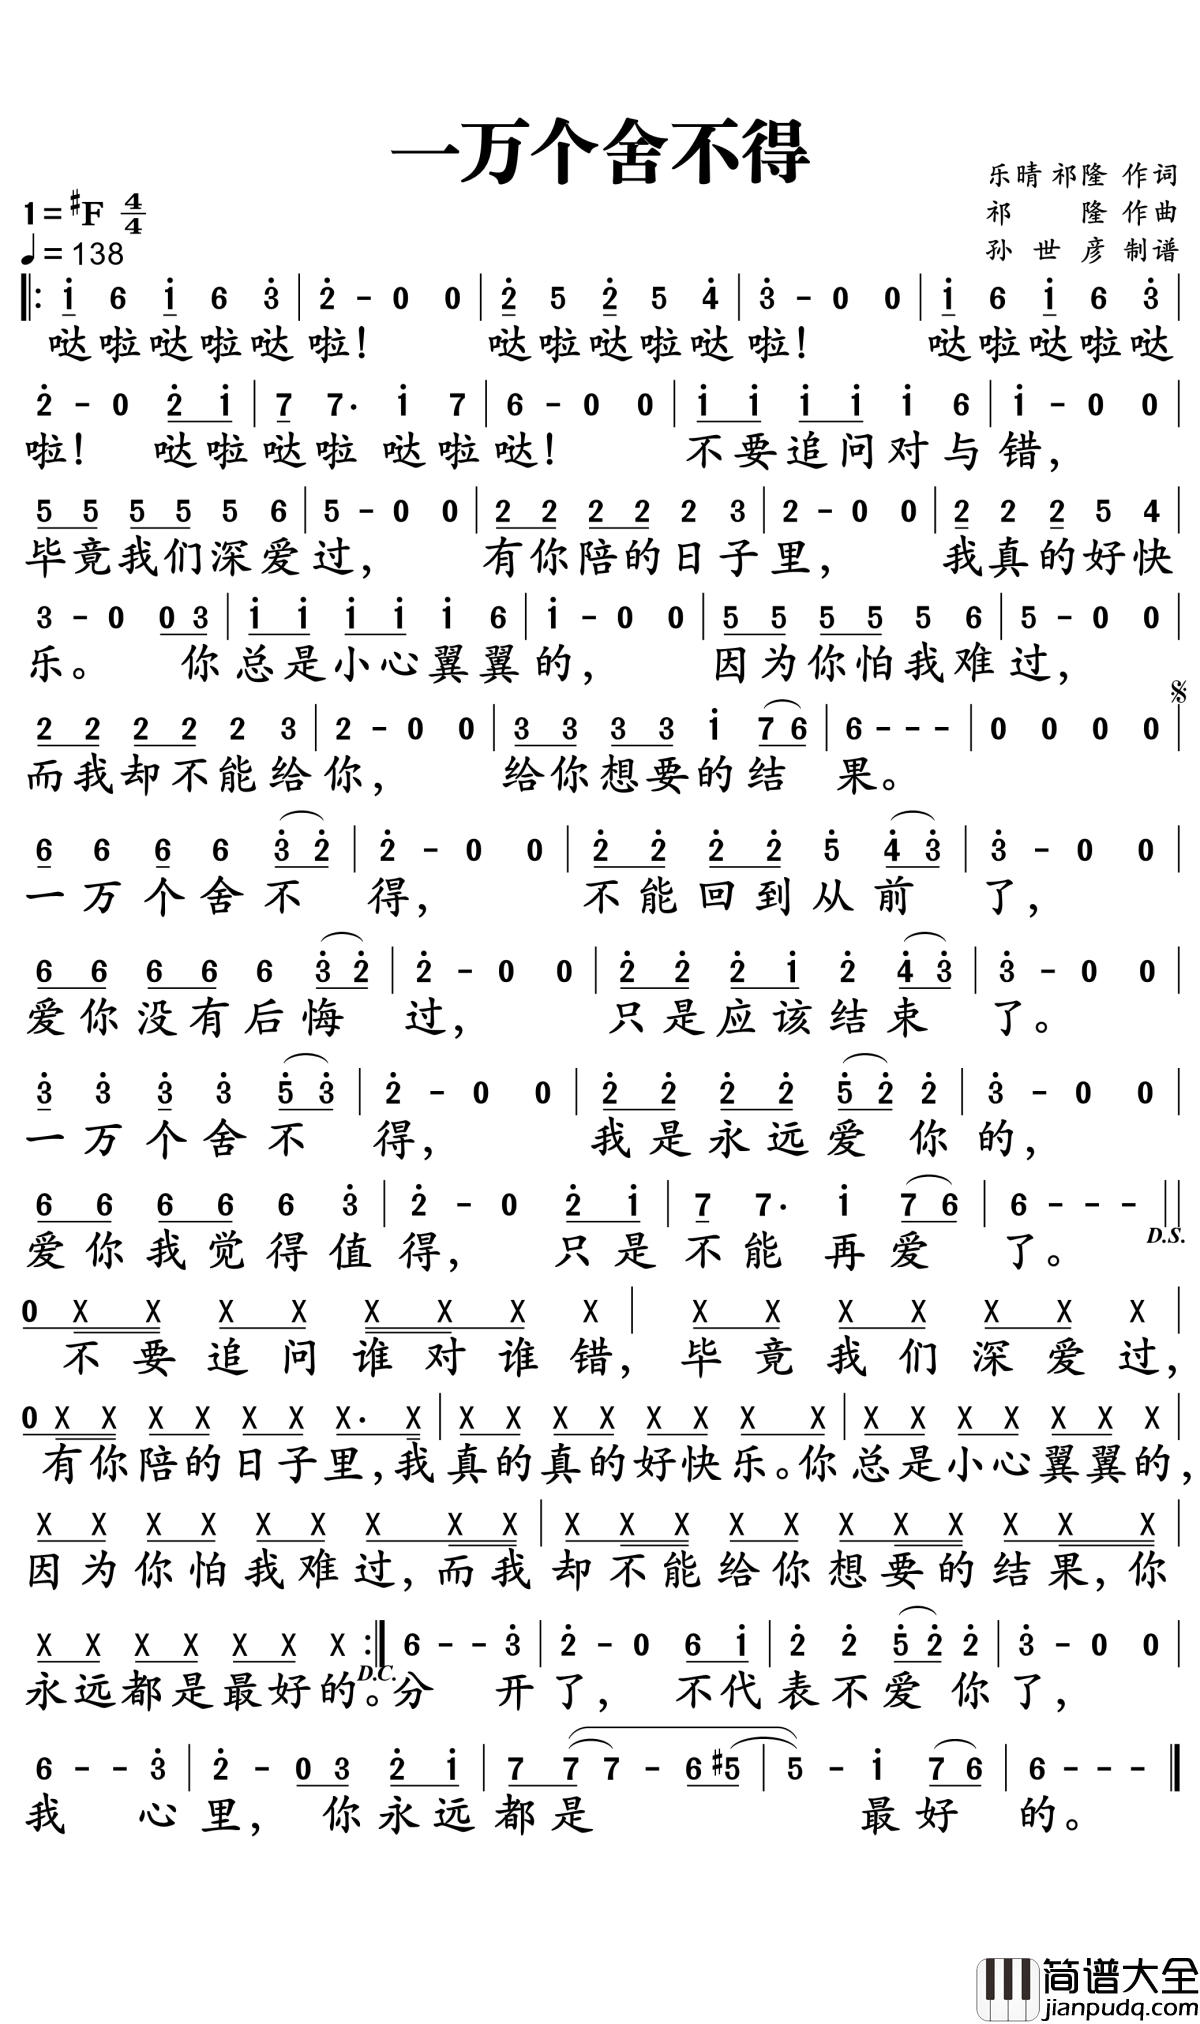 一万个舍不得
乐晴 祁隆 作词
1=#F 4/4
祁 隆 作曲
♩=138
孙世彦 制谱
‖: i 6 i 6 3̇ | 2̇ - 0 0 | 2̇ 5 2̇ 5 4̇ | 3̇ - 0 0 | i 6 i 6 3̇ |
哒啦哒啦哒啦! 哒啦哒啦哒啦! 哒啦哒啦哒
2̇ - 0 2̇ i | 7 7. i 7 | 6 - 0 0 | i i i i i 6 | i - 0 0 |
啦! 哒啦哒啦 哒啦哒! 不要追问对与错,
5 5 5 5 5 6 | 5 - 0 0 | 2 2 2 2 2 3 | 2 - 0 0 | 2 2 2 5 4 |
毕竟我们深爱过, 有你陪的日子里, 我真的好快
3 - 0 0 3 | i i i i i 6 | i - 0 0 | 5 5 5 5 5 6 | 5 - 0 0 |
乐。 你总是小心翼翼的, 因为你怕我难过,
2 2 2 2 2 3 | 2 - 0 0 | 3 3 3 3 i 7 6 | 6 - - - | 0 0 0 0 | 𝄋
而我却不能给你, 给你想要的结 果。
6 6 6 6 3̇ 2̇ | 2̇ - 0 0 | 2̇ 2̇ 2̇ 2̇ 5̇ 4̇ 3̇ | 3̇ - 0 0 |
一万个舍不 得, 不能回到从前 了,
6 6 6 6 6 3̇ 2̇ | 2̇ - 0 0 | 2̇ 2̇ 2̇ i 2̇ 4̇ 3̇ | 3̇ - 0 0 |
爱你没有后悔 过, 只是应该结束 了。
3̇ 3̇ 3̇ 3̇ 5̇ 3̇ | 2̇ - 0 0 | 2̇ 2̇ 2̇ 2̇ 5̇ 2̇ 2̇ | 3̇ - 0 0 |
一万个舍不 得, 我是永远爱 你的,
6 6 6 6 6 3̇ | 2̇ - 0 2̇ i | 7 7. i 7 6 | 6 - - - ‖
爱你我觉得值得, 只是不能 再爱 了。 D.S.
0 X X X X X X X X | X X X X X X X |
不要追问谁对谁错, 毕竟我们深爱过,
0 X X X X X X X. X | X X X X X X X X | X X X X X X X |
有你陪的日子里,我真的真的好快乐。你总是小心翼翼的,
X X X X X X X X X | X X X X X X X X X X X |
因为你怕我难过,而我却不能给你想要的结果,你
X X X X X X X :‖ 6 - - 3̇ | 2̇ - 0 6 i | 2̇ 2̇ 5̇ 2̇ 2̇ | 3̇ - 0 0 |
永远都是最好的。D.C.分 开了, 不代表不爱 你了,
6 - - 3̇ | 2̇ - 0 3 2̇ i | 7 7 7 - 6 #5 | 5 - i 7 6 | 6 - - - ‖
我 心里, 你永远都是 最好 的。
简谱大全
jianpudq.com